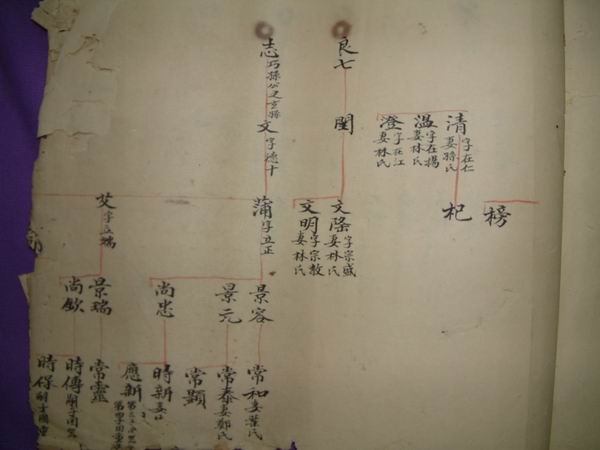 榜
清 字在仁 妻孫氏
溫 字在楊 妻林氏
澄 字在江 妻林氏
杞
良七
閏
文隆 字宗盛 妻林氏
文明 字宗教 妻林氏
志 巧孫公之玄孫
文 字德十
蒲 字立正
艾
景容
景元
尚忠
景瑞
尚欽
常和 妻葉氏
常泰 妻鄭氏
常顯
時新
應新
常靈
時傳
時保